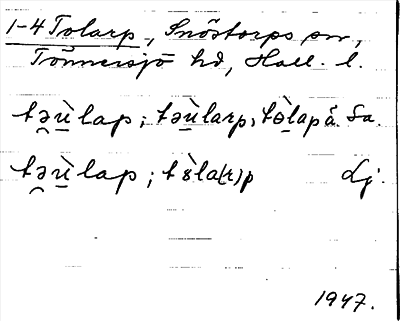 1-4 Tolarp, Snöstorps sn,
Tönnersjö hd, Hall. l.
tə̯ù̱lap; təù̱larp; tɵ̱̀lap å. Sa.
tə̯ù̱lap; tɤ̀la(r)p Lj.
1947.